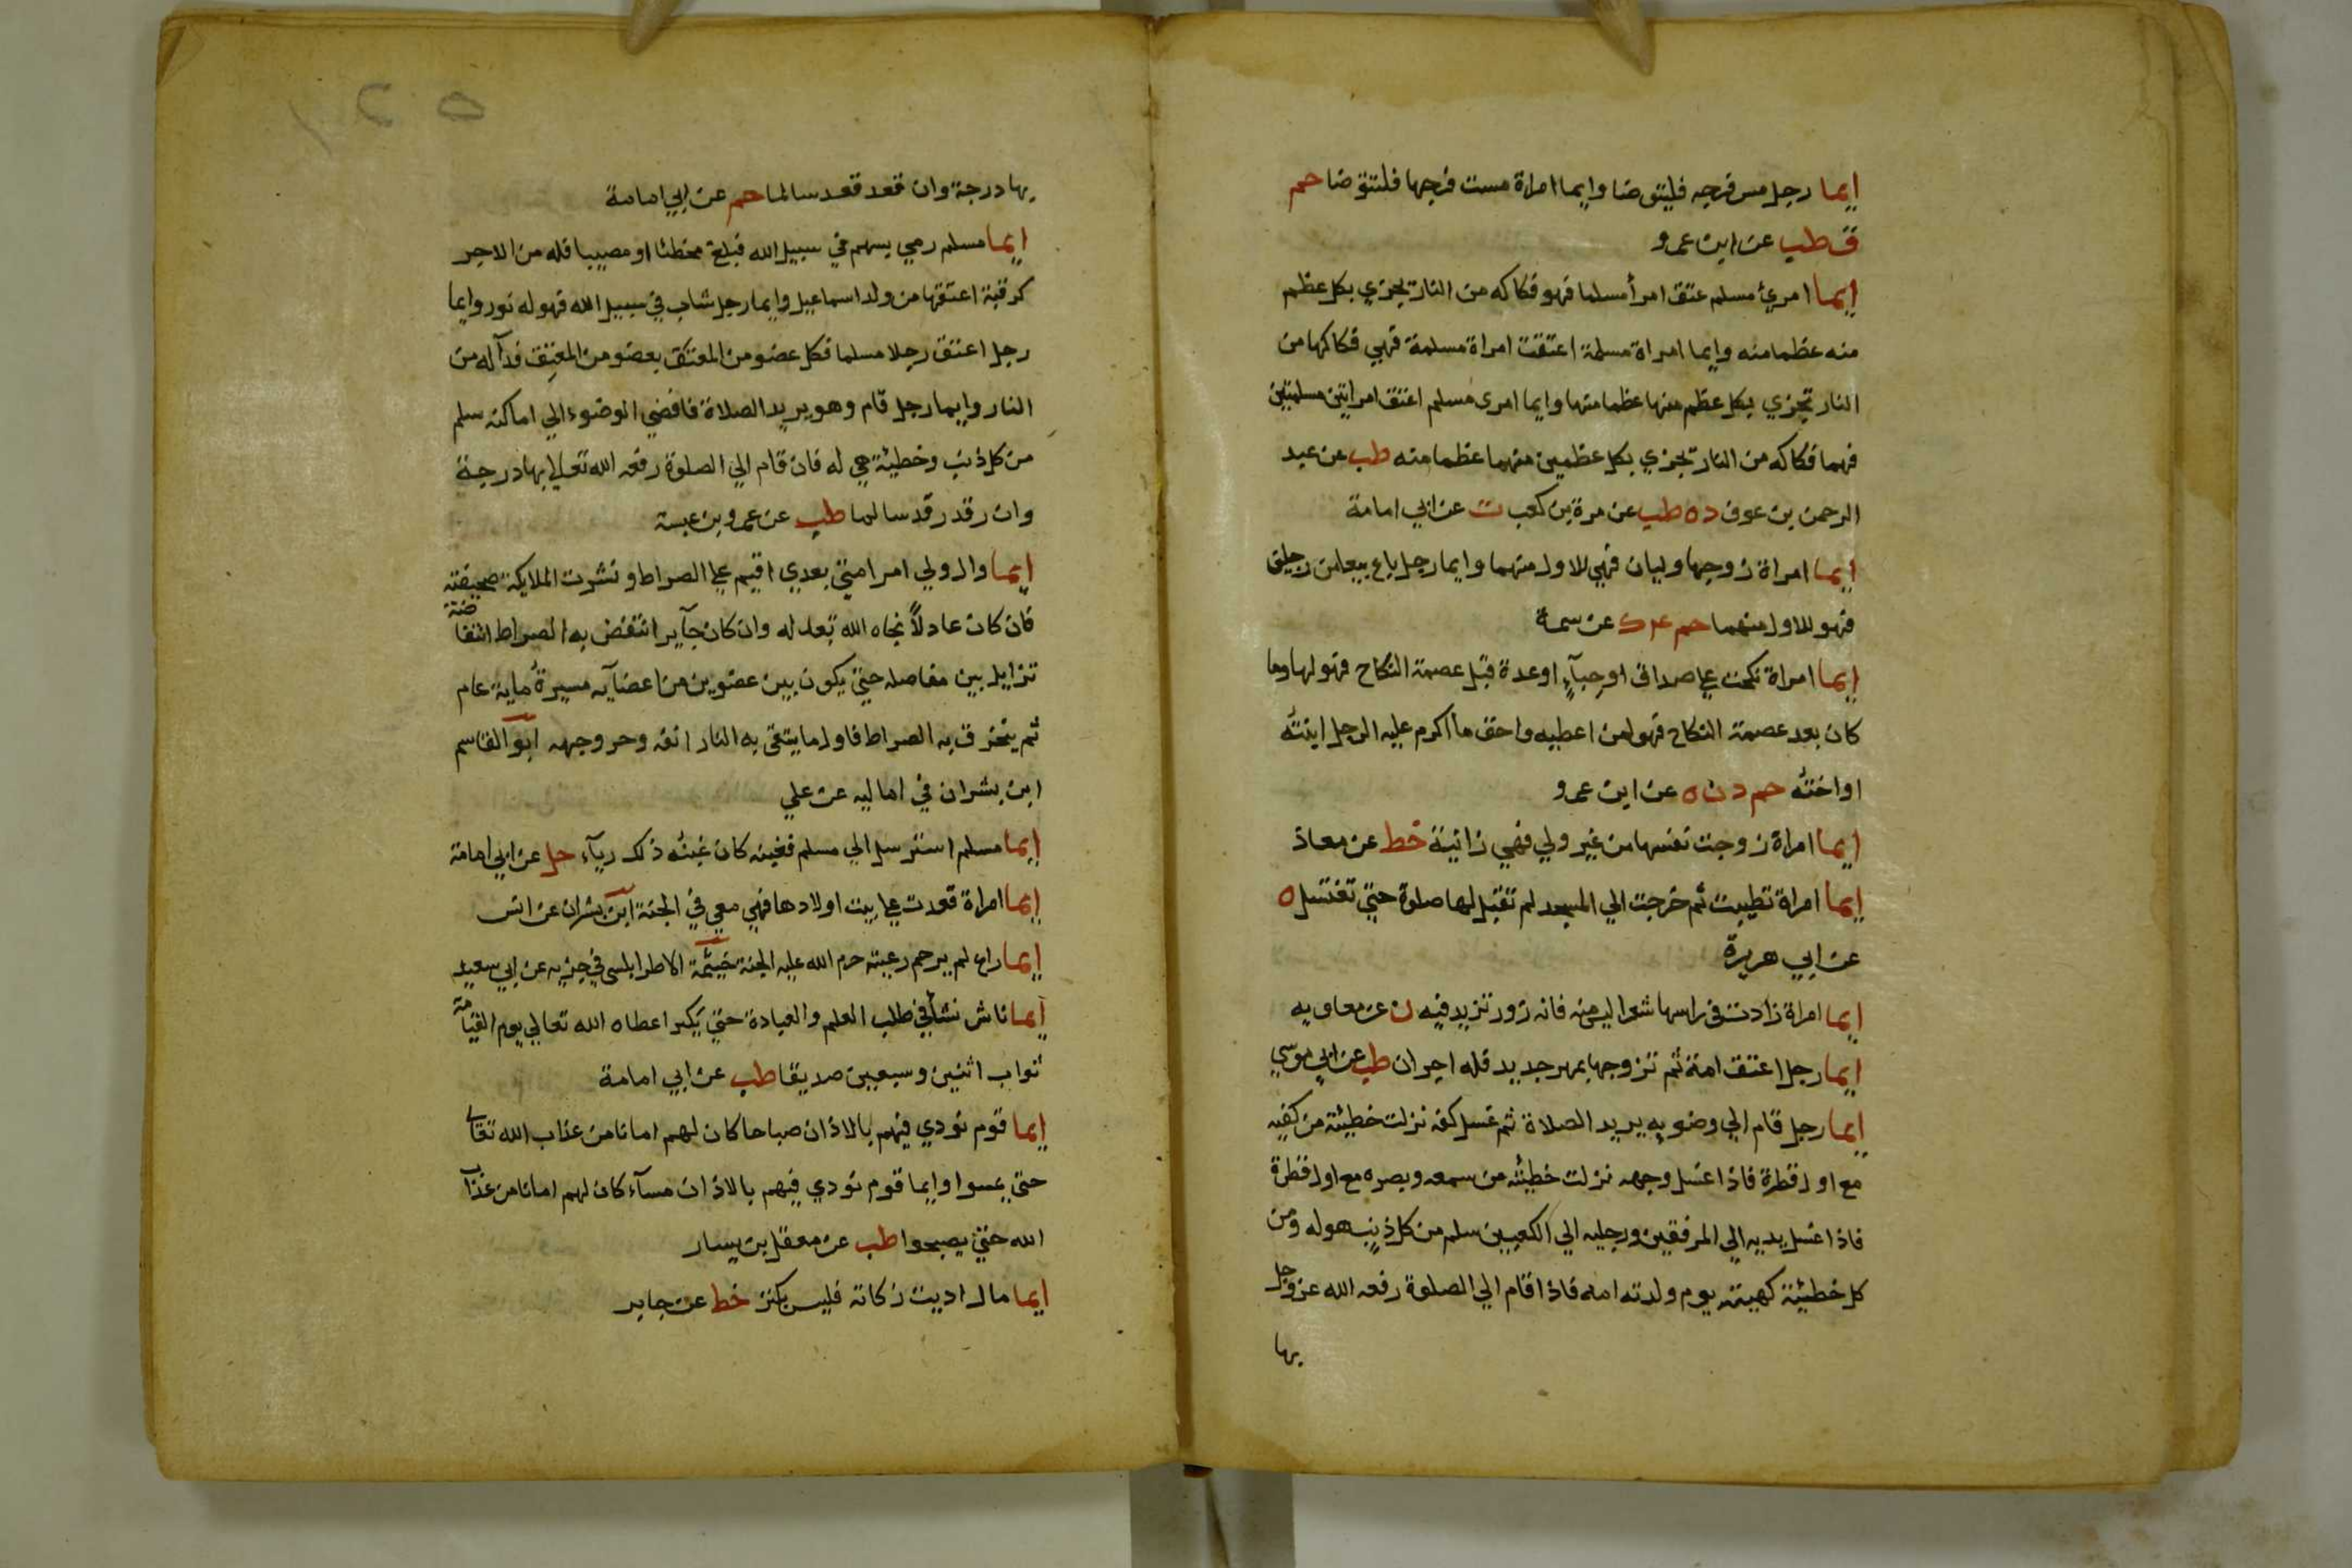 ايما رجل مس فرجه فليتوضا وايما امراة مست فرجها فلتتوضا حم
قط هب عن ابن عمرو
ايما امرئ مسلم عتق امرأ مسلما فهو فكاكه من النار يجزي بكل عظم
منه عظما منه وايما امراة مسلمة اعتقت امراة مسلمة فهي فكاكها من
النار تجزي بكل عظم منها عظما منها وايما امرى مسلم اعتق امراتين مسلمتين
فهما فكاكه من النار تجزي بكل عظمين منهما عظما منه طب عن عبد
الرحمن بن عوف د ه طب عن مرة بن كعب ت عن ابي امامة
ايما امراة زوجها وليان فهي للاول منهما وايما رجل باع بيعا من رجلين
فهو للاول منهما حم عم ك عن سمرة
ايما امراة نكحت على صداق او حباء او عدة قبل عصمة النكاح فهو لها وما
كان بعد عصمة النكاح فهو لمن اعطيه واحق ما اكرم عليه الرجل ابنته
او اخته حم د ن ه عن ابن عمرو
ايما امراة زوجت نفسها من غير ولي فهي زانية خط عن معاذ
ايما امراة تطيبت ثم خرجت الي المسجد لم تقبل لها صلوة حتي تغتسل ه
عن ابي هريرة
ايما امراة زادت في راسها شعرا ليس منه فانه زور تزيد فيه ن عن معاويه
ايما رجل اعتق امته ثم تزوجها بمهر جديد فله اجران طب عن ابي موسي
ايما رجل قام الي وضويه يريد الصلاة ثم غسل كفه نزلت خطيئته من كفيه
مع اول قطرة فاذا غسل وجهه نزلت خطيئته من سمعه وبصره مع اول قطرة
فاذا غسل يديه الي المرفقين ورجليه الي الكعبين سلم من كل ذنب هو له ومن
كل خطيئة كهيئته يوم ولدته امه فاذا قام الي الصلوة رفعه الله عز وجل
بها
بها درجة وان قعد قعد سالما حم عن ابي امامة
ايما مسلم رمي بسهم في سبيل الله فبلغ مخطئا او مصيبا فله من الاجر
كرقبة اعتقها من ولد اسماعيل وايما رجل شاب في سبيل الله فهو له نور وايما
رجل اعتق رجلا مسلما فكل عضو من المعتق بعضو من المعتق فدآ له من
النار وايما رجل قام وهو يريد الصلاة فافضي الوضوء الي اماكنه سلم
من كل ذنب وخطيئة هي له فان قام الي الصلوة رفعه الله تعالى بها درجة
وان رقد رقد سالما طب عن عمرو بن عبسة
ايما وال ولي امر امتي بعدي اقيم على الصراط ونشرت الملايكة صحيفته
فان كان عادلا نجاه الله بعدله وان كان جآيرا انتفض به الصراط انتفاضة
تزايل بين مفاصله حتي يكون بين عضوين من اعضآيه مسيرة ماية عام
ثم ينخرق به الصراط فاول ما يتقي به النار انفه وحر وجهه ابو القاسم
ابن بشران في اماليه عن علي
ايما مسلم استرسل الي مسلم فغبنه كان غبنه ذلك ربآء حل عن ابي امامة
ايما امراة قعدت على بيت اولادها فهي معي في الجنة ابن بشران عن انس
ايما راع لم يرحم رعيته حرم الله عليه الجنة خيثمة الاطرابلسي في جزيه عن ابي سعيد
ايما ناش نشأ في طلب العلم والعبادة حتي يكبر اعطاه الله تعالي يوم القيامة
ثواب اثنين وسبعين صديقا طب عن ابي امامة
ايما قوم نودي فيهم بالاذان صباحا كان لهم امانا من عذاب الله تعالى
حتى يمسوا وايما قوم نودي فيهم بالاذان مسآء كان لهم امانا من عذاب
الله حتي يصبحوا طب عن معقل بن يسار
ايما مال اديت زكاته فليس بكنز خط عن جابر